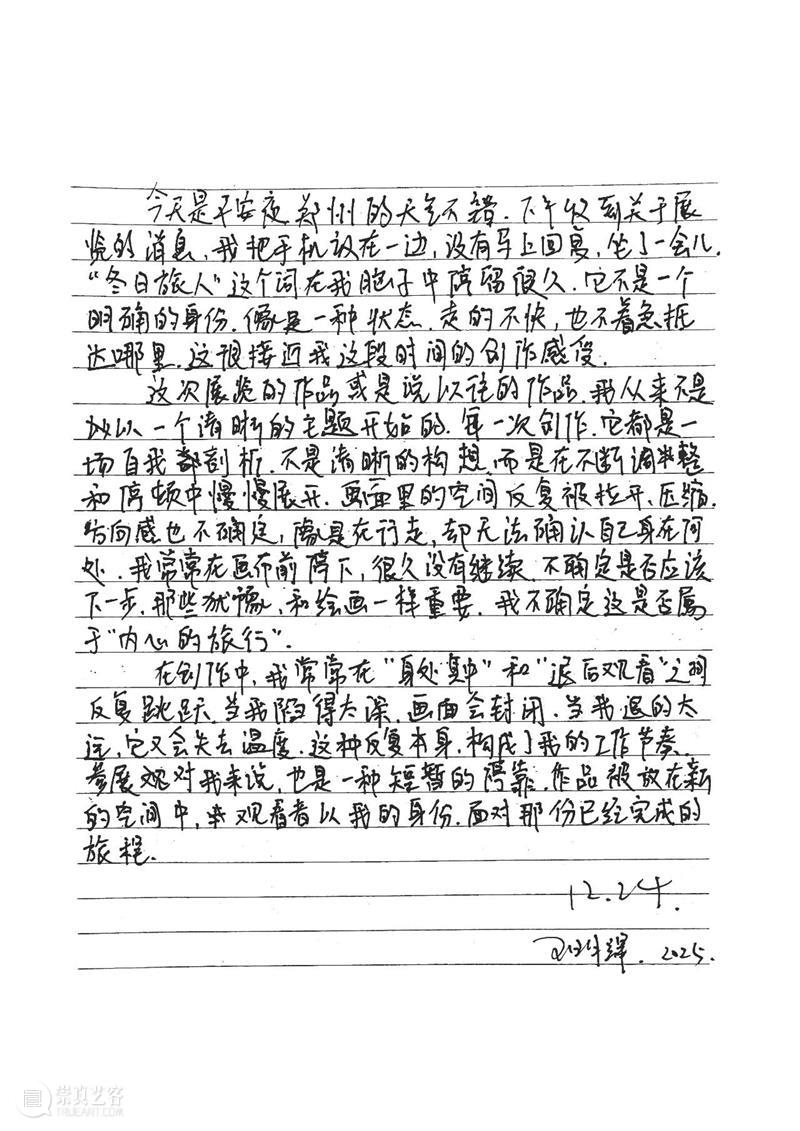 今天是平安夜 郑州的天气不错. 下午收到关于展
览的消息, 我把手机放在一边, 没有马上回复, 坐了一会儿.
“冬日旅人”这个词在我脑子中停留很久. 它不是一个
明确的身份. 像是一种状态. 走的不快, 也不着急抵
达哪里. 这很接近我这段时间的创作感受.
这次展览的作品或是说以往的作品. 我从来不是
以一个清晰的主题开始的. 每一次创作. 它都是一
场自我剖析. 不是清晰的构想. 而是在不断调整
和停顿中慢慢展开. 画面里的空间反复被拉开、压缩.
方向感也不确定, 像是在行走, 却无法确认自己身在何
处. 我常常在画布前停下, 很久没有继续. 不确定是否应该
下一步. 那些犹豫, 和绘画一样重要. 我不确定这是否属
于“内心的旅行”.
在创作中, 我常常在“身处其中”和“退后观看”之间
反复跳跃. 当我陷得太深. 画面会封闭. 当我退的太
远, 它又会失去温度. 这种反复本身, 构成了我的工作节奏.
参展对我来说, 也是一种短暂的停靠. 作品被放在新
的空间中, 观看者以我的身份. 面对那份已经完成的
旅程.
12.24.
2025.
崇真艺客
TRUEART.COM